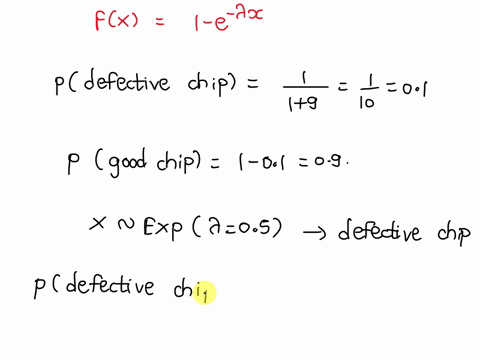 F(x) = 1-e^{-λx}
P(defective chip) = \frac{1}{1+9} = \frac{1}{10} = 0.1
P (good chip) = 1-0.1 = 0.9.
X ~ Exp (λ=0.5) → defective chip
P(defective chi